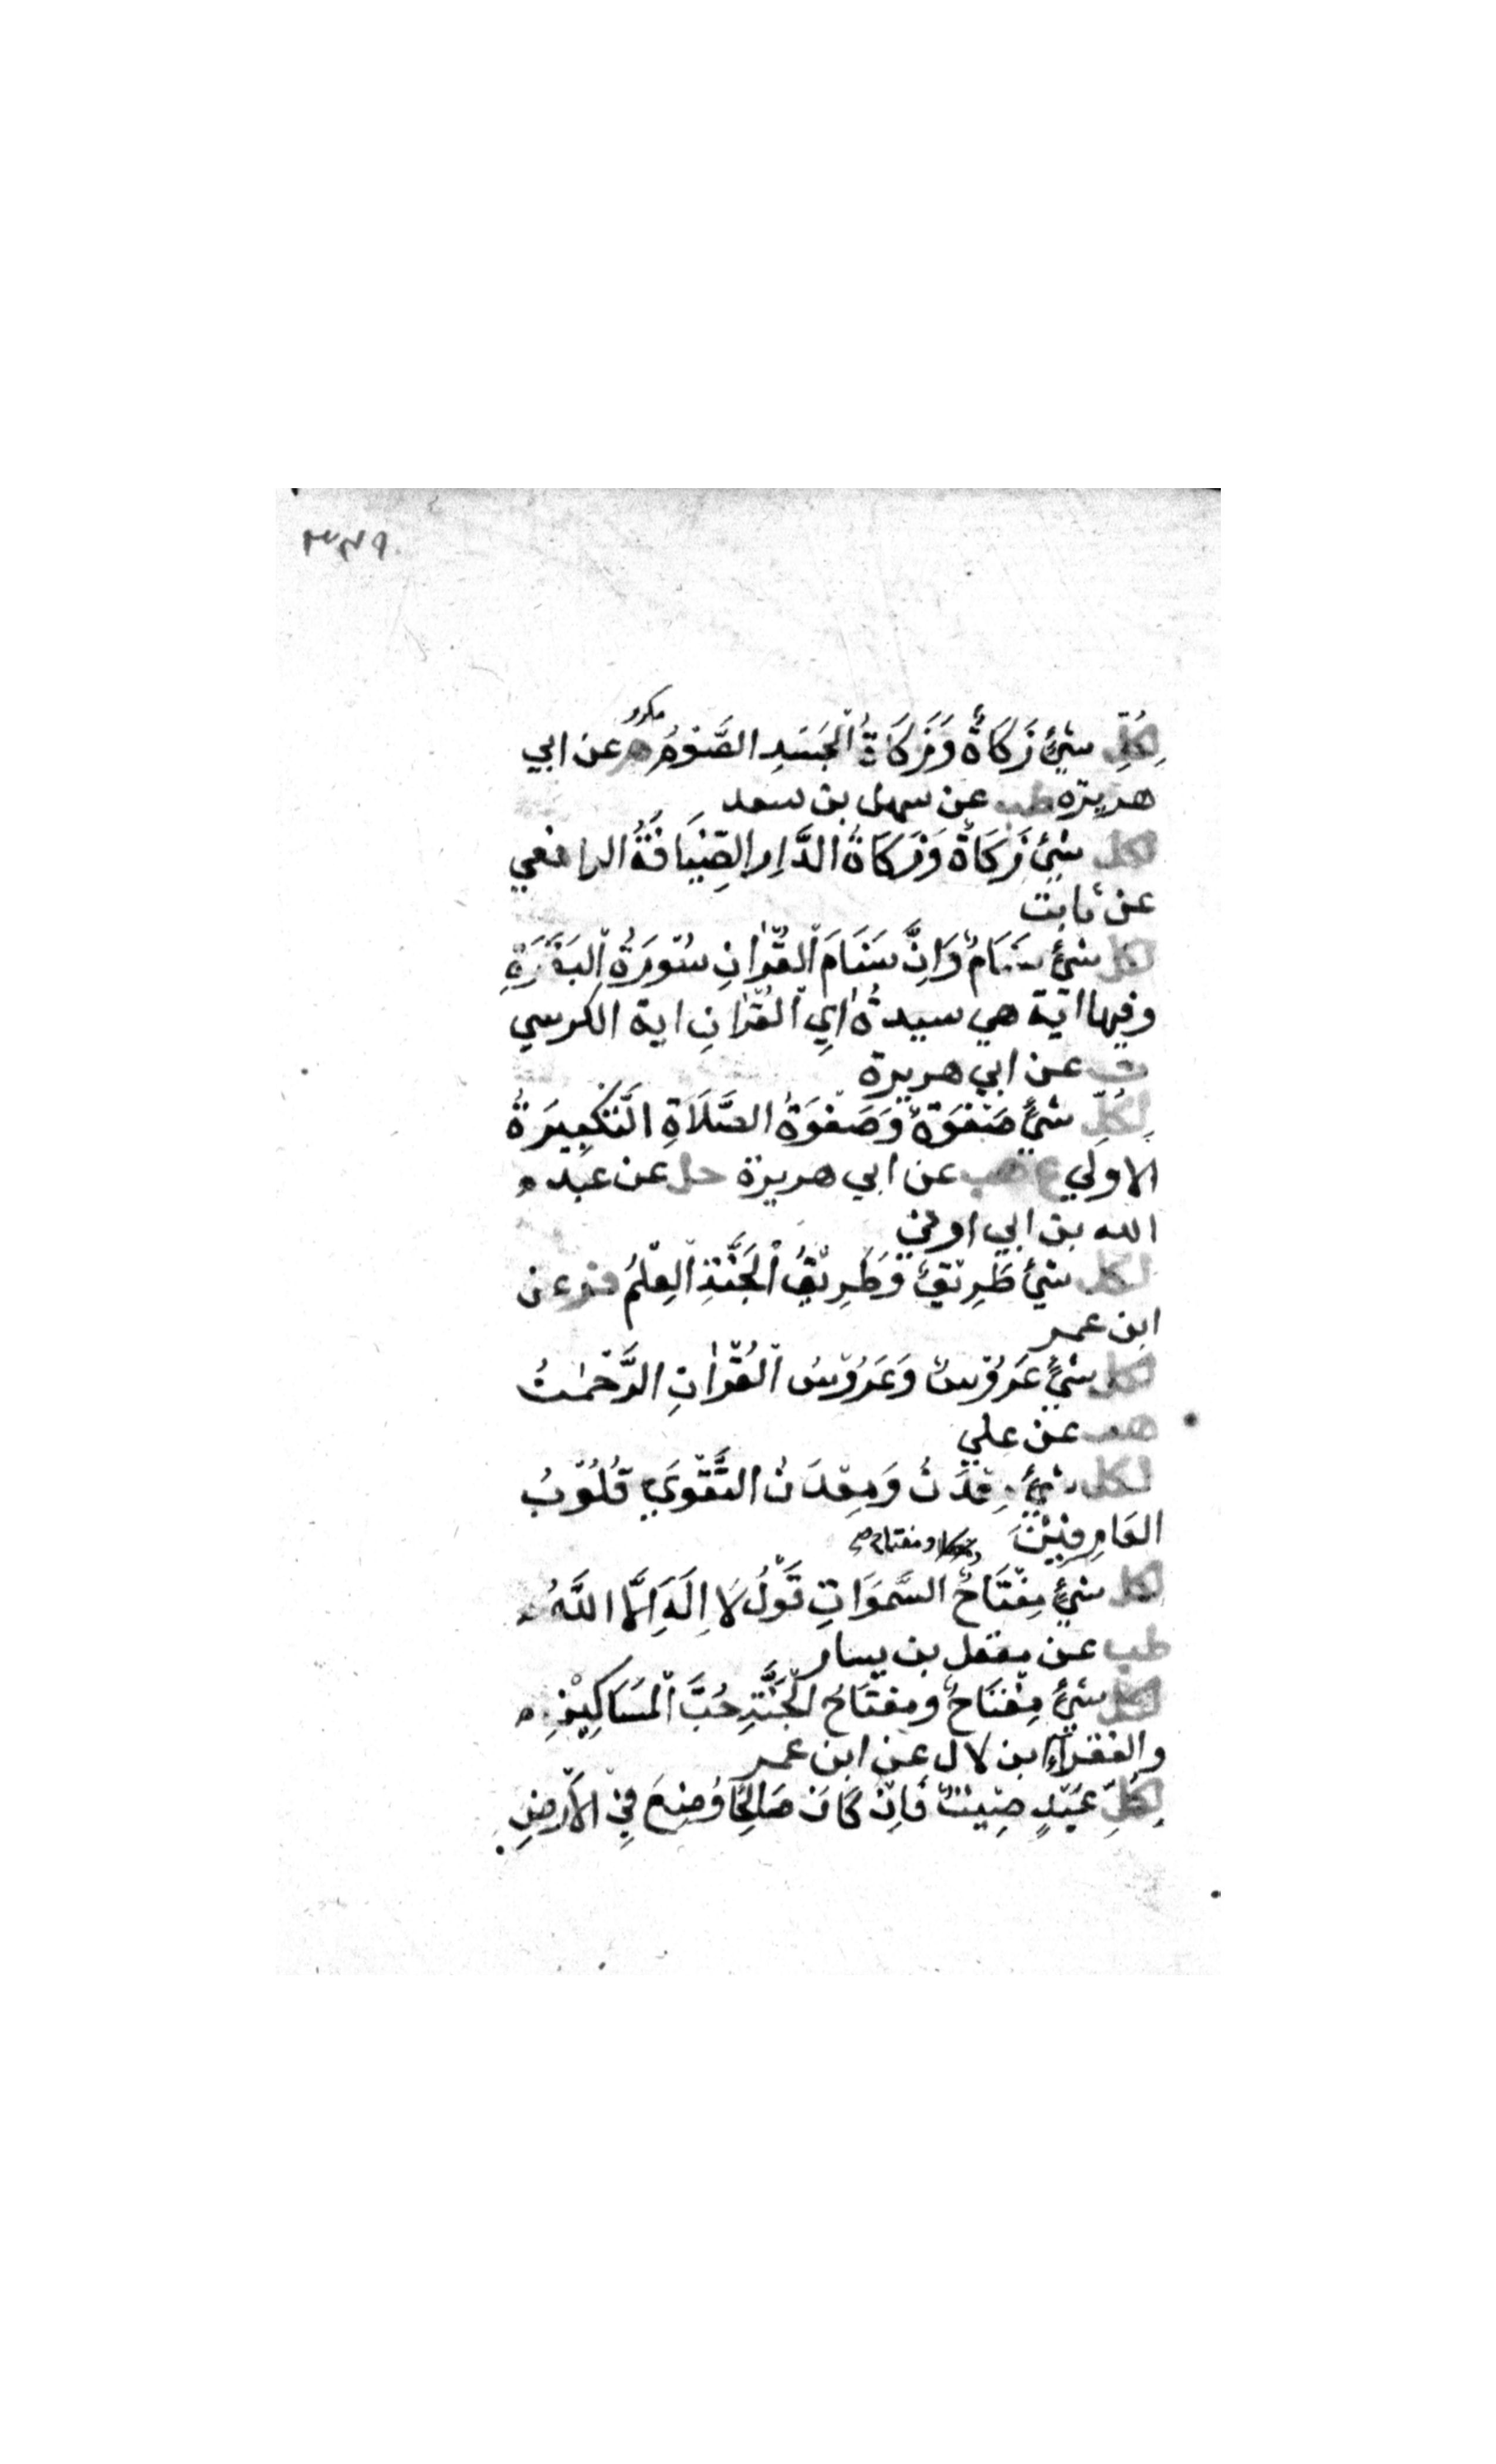 ٣٤٩
مكرر
لِكُلِّ شَيْءٍ زَكَاةٌ وَزَكَاةُ الْجَسَدِ الصَّوْمُ ه عن ابي
هريرة طب عن سهل بن سعد
لكل شيء زَكَاةٌ وَزَكَاةُ الدَّارِ الضِّيَافَةُ الرافعي
عن ثابت
لكل شيء سَنَامٌ وَاِنَّ سَنَامَ الْقُرْاٰنِ سُوْرَةُ الْبَقَرَةِ
وفيها اية هي سيدةُ اٰيِ الْقُرْاٰنِ اية الكرسي
ت عن ابي هريرة
لِكُلِّ شَيْءٍ صَفْوَةٌ وَصَفْوَةُ الصَّلَاةِ التَّكْبِيرَةُ
الاولَي ع هب عن ابي هريرة حل عن عبد
الله بن ابي اوفي
لكل شيء طَرِيْقٌ وَطَرِيْقُ الْجَنَّةِ الْعِلْمُ فر عن
ابن عمر
لكل شَيْءٍ عَرُوْسٌ وَعَرُوْسُ الْقُرْاٰنِ الرَّحْمٰنُ
هب عن علي
لكل شيء مِعْدَنٌ وَمِعْدَنُ التَّقْوَي قُلُوْبُ
العَارِفِيْنَ
ومفتاح صح
لكل شَيْءٍ مِفْتَاحٌ السَّمَوَاتِ قَوْلُ لَا اِلَهَ اِلَّا اللَّهُ
طب عن معقل بن يسار
لكل شيء مِفْتَاحٌ ومِفْتَاحُ الْجَنَّةِ حُبُّ الْمَسَاكِيْنِ
والفقراءِ ابن لال عن ابن عمر
لِكُلِّ عَبْدٍ صِيْتٌ فَاِنْ كَانَ صَالِحًا وُضِعَ فِيْ الْاَرْضِ